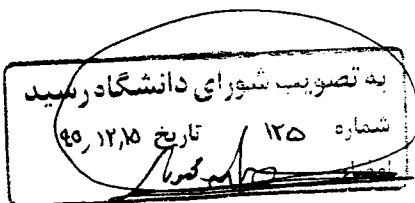 به تصویب شورای دانشگاه رسید
شماره ۱۲۵ تاریخ ۹۵,۱۲,۱۵
امضاء